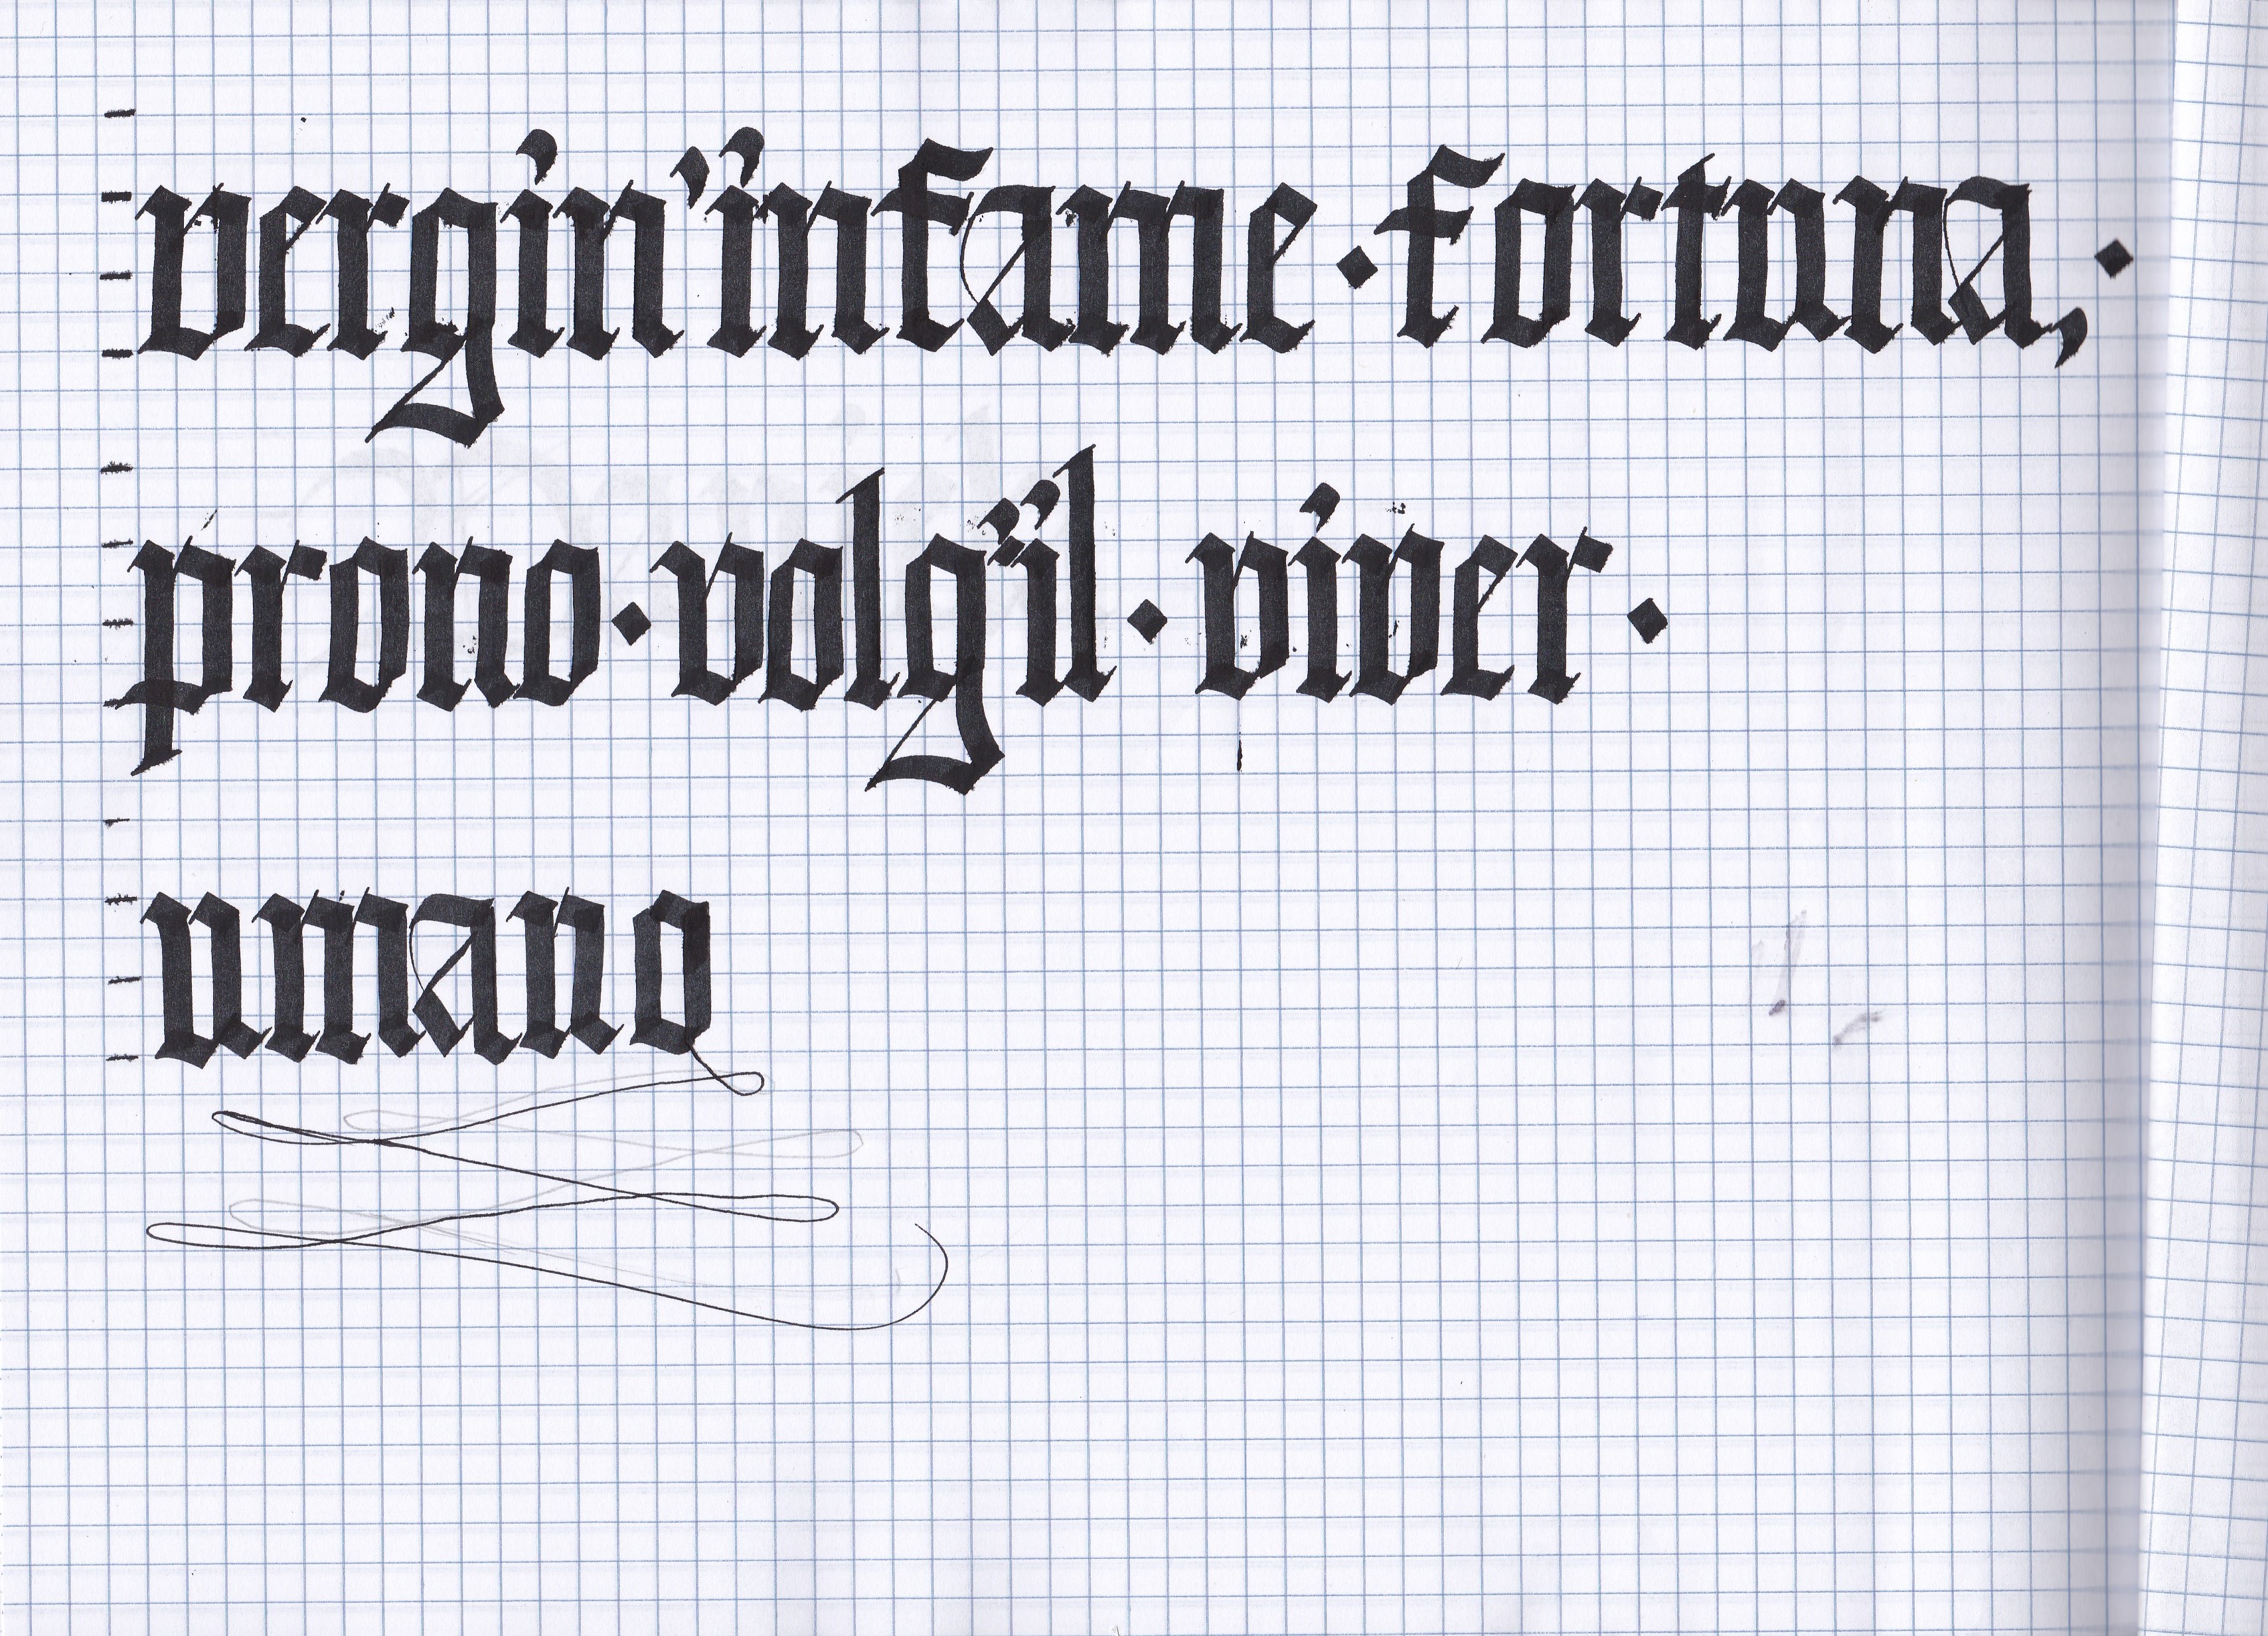 vergin'infame · fortuna, ·
prono · volg'il · viver ·
umano